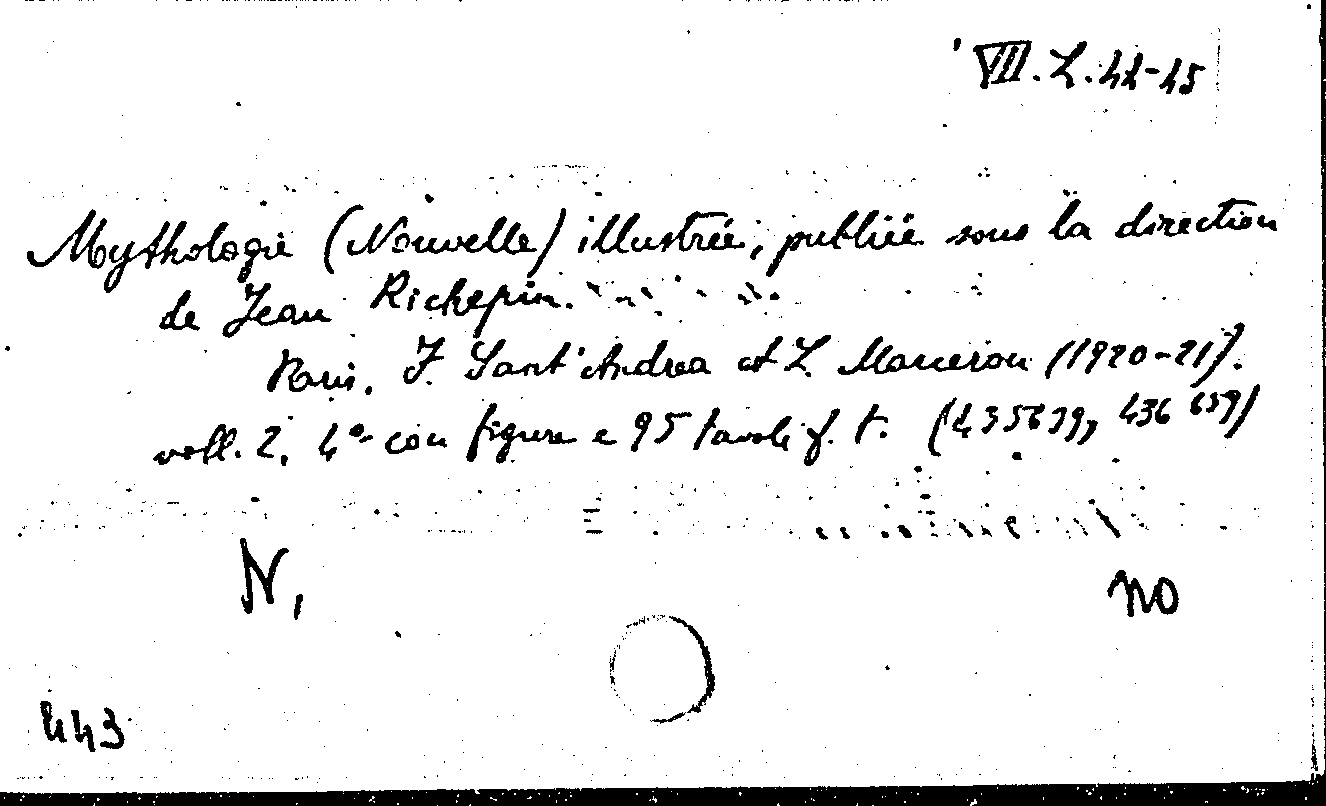 VII. L. 44-45
Mythologie (Nouvelle) illustrée, publiée sous la direction
de Jean Richepin.
Paris, F. Sant'Andrea et L. Marcerou (1920-21).
voll. 2, 4º con figure e 95 tavole f. t. (435639, 436659)
N,
no
443